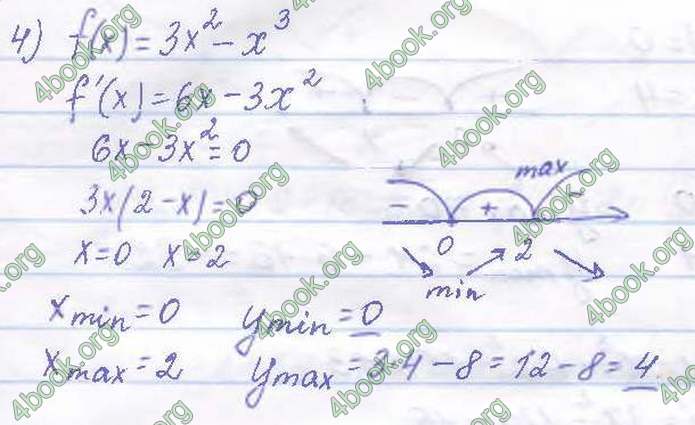 4) f(x) = 3x² - x³
f'(x) = 6x - 3x²
6x - 3x² = 0
3x(2 - x) = 0
x = 0 x = 2
max
- + -
0 2
min
x min = 0 y min = 0
x max = 2 y max = 3·4 - 8 = 12 - 8 = 4
4book.org